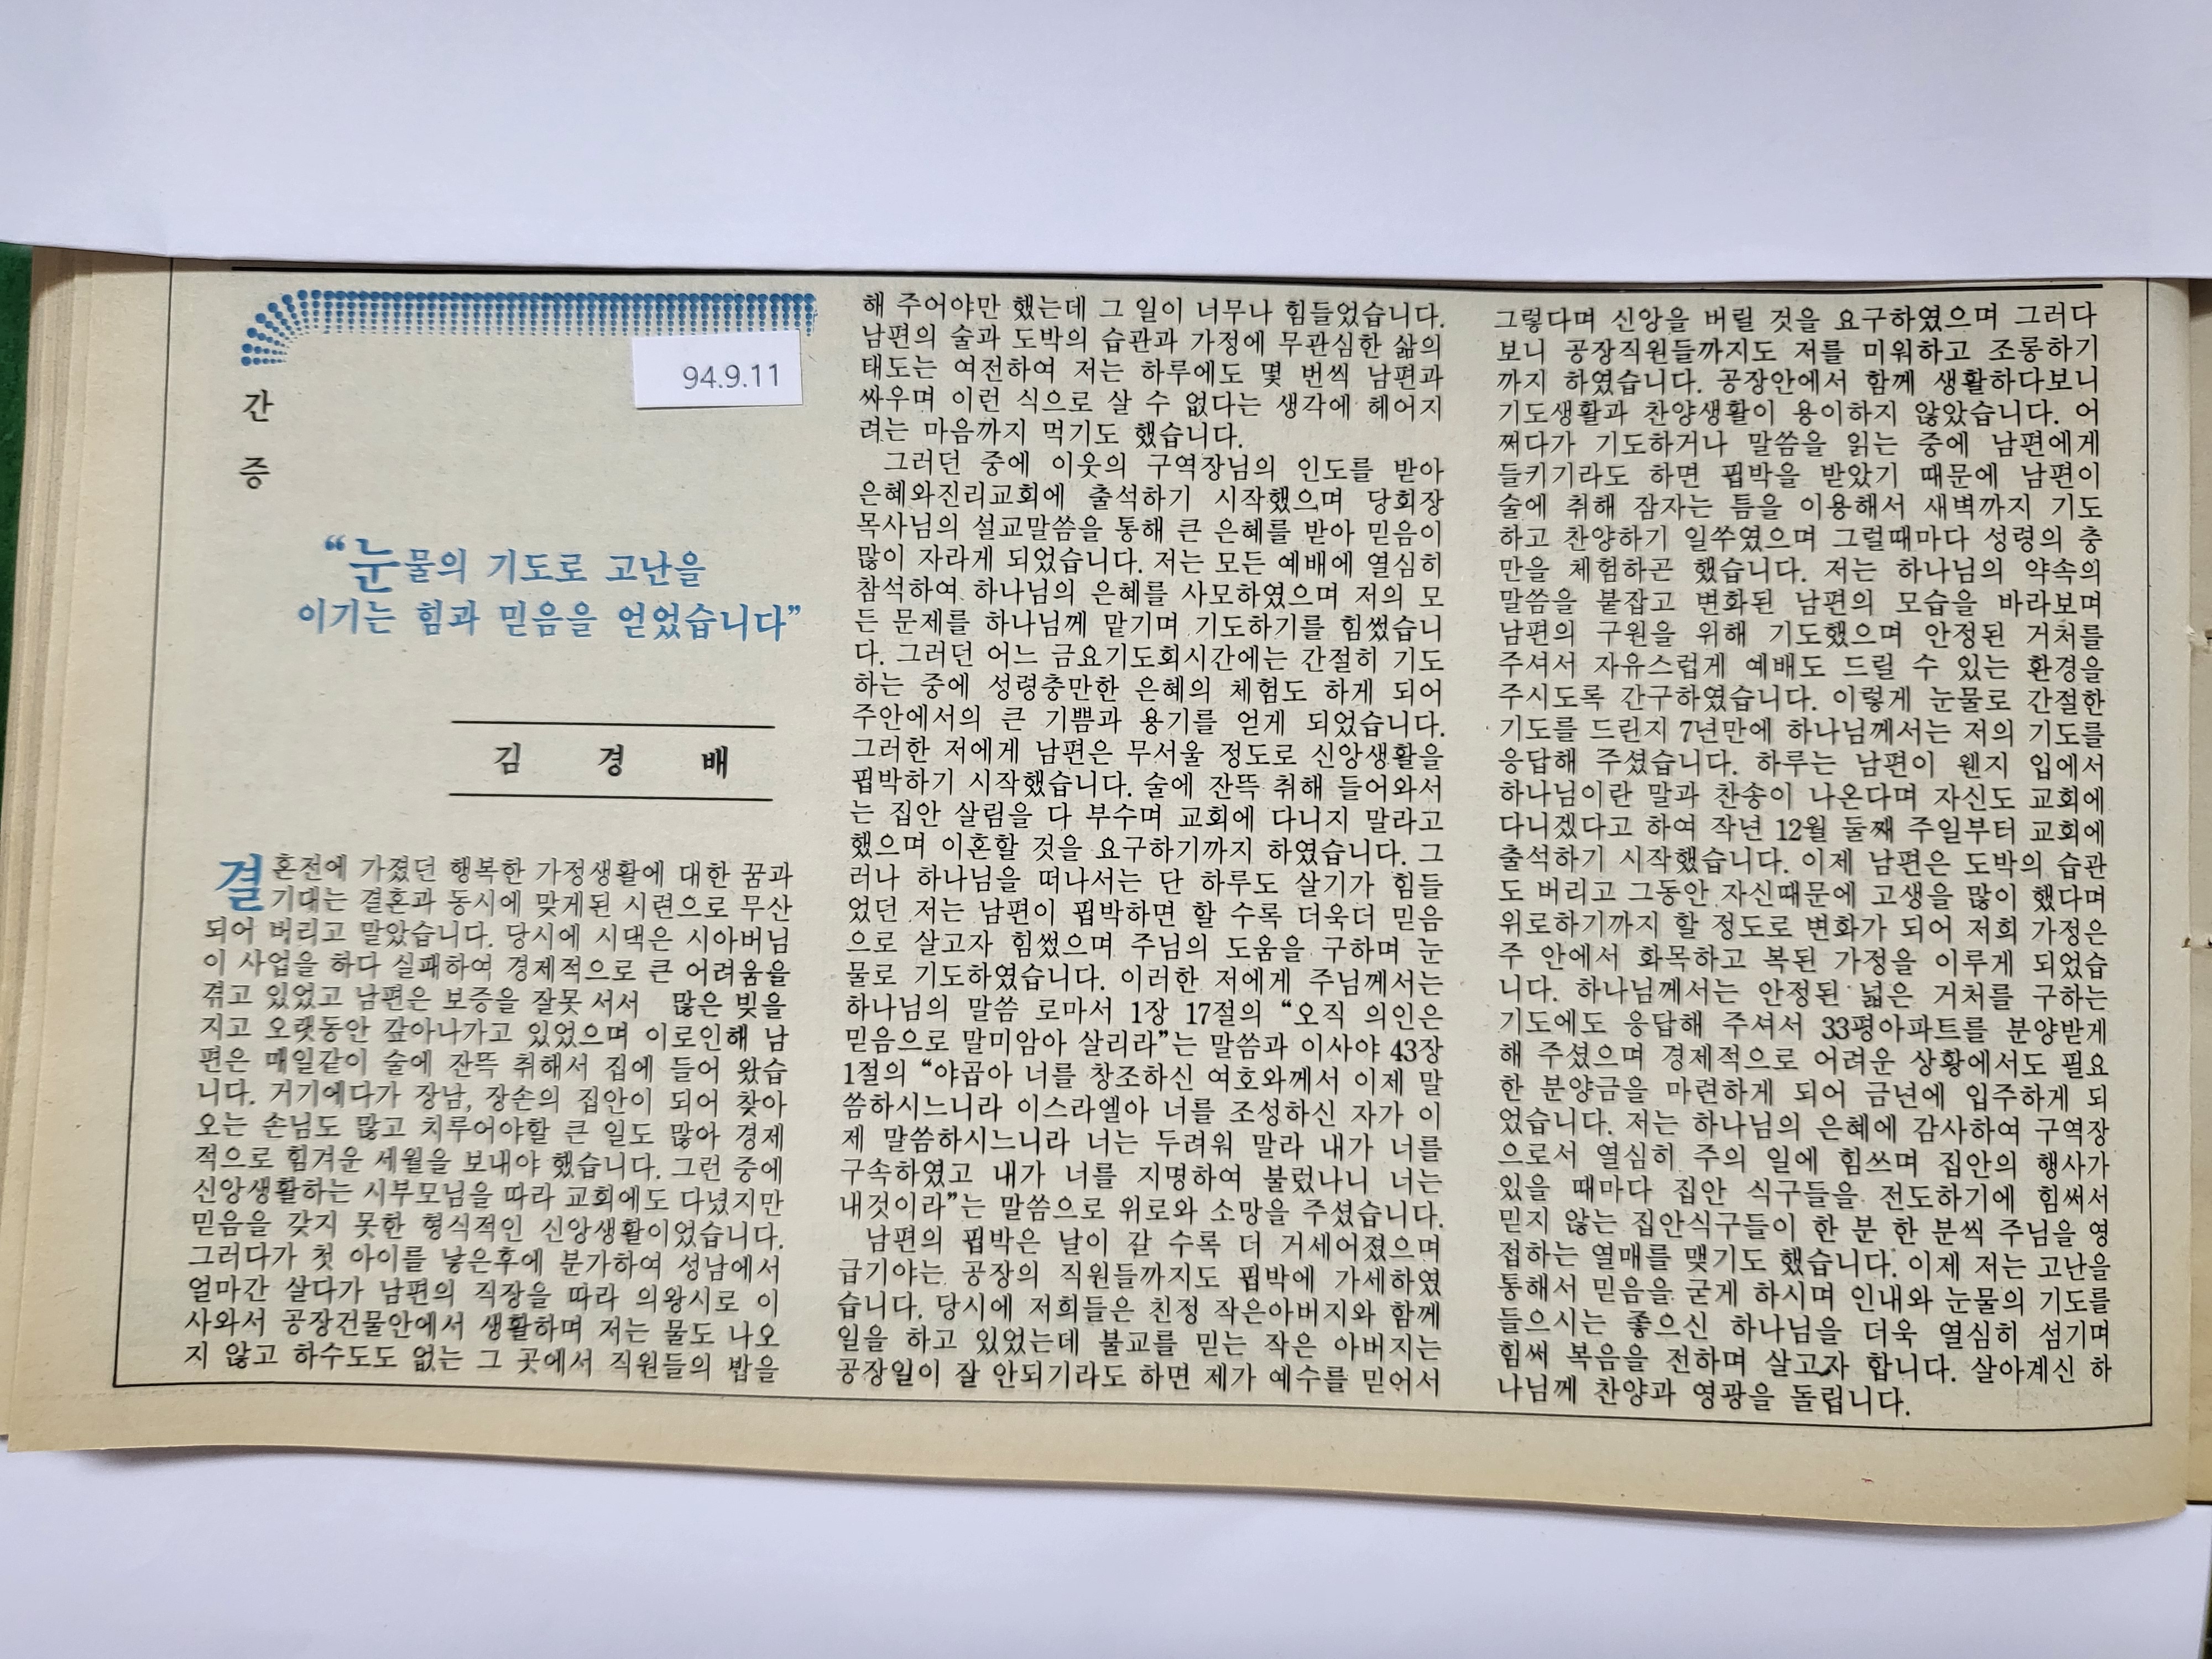 94.9.11
간
증
“눈물의 기도로 고난을
이기는 힘과 믿음을 얻었습니다”
김 경 배
결혼전에 가졌던 행복한 가정생활에 대한 꿈과
기대는 결혼과 동시에 맞게된 시련으로 무산
되어 버리고 말았습니다. 당시에 시댁은 시아버님
이 사업을 하다 실패하여 경제적으로 큰 어려움을
겪고 있었고 남편은 보증을 잘못 서서 많은 빚을
지고 오랫동안 갚아나가고 있었으며 이로인해 남
편은 매일같이 술에 잔뜩 취해서 집에 들어 왔습
니다. 거기에다가 장남, 장손의 집안이 되어 찾아
오는 손님도 많고 치루어야할 큰 일도 많아 경제
적으로 힘겨운 세월을 보내야 했습니다. 그런 중에
신앙생활하는 시부모님을 따라 교회에도 다녔지만
믿음을 갖지 못한 형식적인 신앙생활이었습니다.
그러다가 첫 아이를 낳은후에 분가하여 성남에서
얼마간 살다가 남편의 직장을 따라 의왕시로 이
사와서 공장건물안에서 생활하며 저는 물도 나오
지 않고 하수도도 없는 그 곳에서 직원들의 밥을
해 주어야만 했는데 그 일이 너무나 힘들었습니다.
남편의 술과 도박의 습관과 가정에 무관심한 삶의
태도는 여전하여 저는 하루에도 몇 번씩 남편과
싸우며 이런 식으로 살 수 없다는 생각에 헤어지
려는 마음까지 먹기도 했습니다.
그러던 중에 이웃의 구역장님의 인도를 받아
은혜와진리교회에 출석하기 시작했으며 당회장
목사님의 설교말씀을 통해 큰 은혜를 받아 믿음이
많이 자라게 되었습니다. 저는 모든 예배에 열심히
참석하여 하나님의 은혜를 사모하였으며 저의 모
든 문제를 하나님께 맡기며 기도하기를 힘썼습니
다. 그러던 어느 금요기도회시간에는 간절히 기도
하는 중에 성령충만한 은혜의 체험도 하게 되어
주안에서의 큰 기쁨과 용기를 얻게 되었습니다.
그러한 저에게 남편은 무서울 정도로 신앙생활을
핍박하기 시작했습니다. 술에 잔뜩 취해 들어와서
는 집안 살림을 다 부수며 교회에 다니지 말라고
했으며 이혼할 것을 요구하기까지 하였습니다. 그
러나 하나님을 떠나서는 단 하루도 살기가 힘들
었던 저는 남편이 핍박하면 할 수록 더욱더 믿음
으로 살고자 힘썼으며 주님의 도움을 구하며 눈
물로 기도하였습니다. 이러한 저에게 주님께서는
하나님의 말씀 로마서 1장 17절의 “오직 의인은
믿음으로 말미암아 살리라”는 말씀과 이사야 43장
1절의 “야곱아 너를 창조하신 여호와께서 이제 말
씀하시느니라 이스라엘아 너를 조성하신 자가 이
제 말씀하시느니라 너는 두려워 말라 내가 너를
구속하였고 내가 너를 지명하여 불렀나니 너는
내것이라”는 말씀으로 위로와 소망을 주셨습니다.
남편의 핍박은 날이 갈 수록 더 거세어졌으며
급기야는 공장의 직원들까지도 핍박에 가세하였
습니다. 당시에 저희들은 친정 작은아버지와 함께
일을 하고 있었는데 불교를 믿는 작은 아버지는
공장일이 잘 안되기라도 하면 제가 예수를 믿어서
그렇다며 신앙을 버릴 것을 요구하였으며 그러다
보니 공장직원들까지도 저를 미워하고 조롱하기
까지 하였습니다. 공장안에서 함께 생활하다보니
기도생활과 찬양생활이 용이하지 않았습니다. 어
쩌다가 기도하거나 말씀을 읽는 중에 남편에게
들키기라도 하면 핍박을 받았기 때문에 남편이
술에 취해 잠자는 틈을 이용해서 새벽까지 기도
하고 찬양하기 일쑤였으며 그럴때마다 성령의 충
만을 체험하곤 했습니다. 저는 하나님의 약속의
말씀을 붙잡고 변화된 남편의 모습을 바라보며
남편의 구원을 위해 기도했으며 안정된 거처를
주셔서 자유스럽게 예배도 드릴 수 있는 환경을
주시도록 간구하였습니다. 이렇게 눈물로 간절한
기도를 드린지 7년만에 하나님께서는 저의 기도를
응답해 주셨습니다. 하루는 남편이 웬지 입에서
하나님이란 말과 찬송이 나온다며 자신도 교회에
다니겠다고 하여 작년 12월 둘째 주일부터 교회에
출석하기 시작했습니다. 이제 남편은 도박의 습관
도 버리고 그동안 자신때문에 고생을 많이 했다며
위로하기까지 할 정도로 변화가 되어 저희 가정은
주 안에서 화목하고 복된 가정을 이루게 되었습
니다. 하나님께서는 안정된 넓은 거처를 구하는
기도에도 응답해 주셔서 33평아파트를 분양받게
해 주셨으며 경제적으로 어려운 상황에서도 필요
한 분양금을 마련하게 되어 금년에 입주하게 되
었습니다. 저는 하나님의 은혜에 감사하여 구역장
으로서 열심히 주의 일에 힘쓰며 집안의 행사가
있을 때마다 집안 식구들을 전도하기에 힘써서
믿지 않는 집안식구들이 한 분 한 분씩 주님을 영
접하는 열매를 맺기도 했습니다. 이제 저는 고난을
통해서 믿음을 굳게 하시며 인내와 눈물의 기도를
들으시는 좋으신 하나님을 더욱 열심히 섬기며
힘써 복음을 전하며 살고자 합니다. 살아계신 하
나님께 찬양과 영광을 돌립니다.